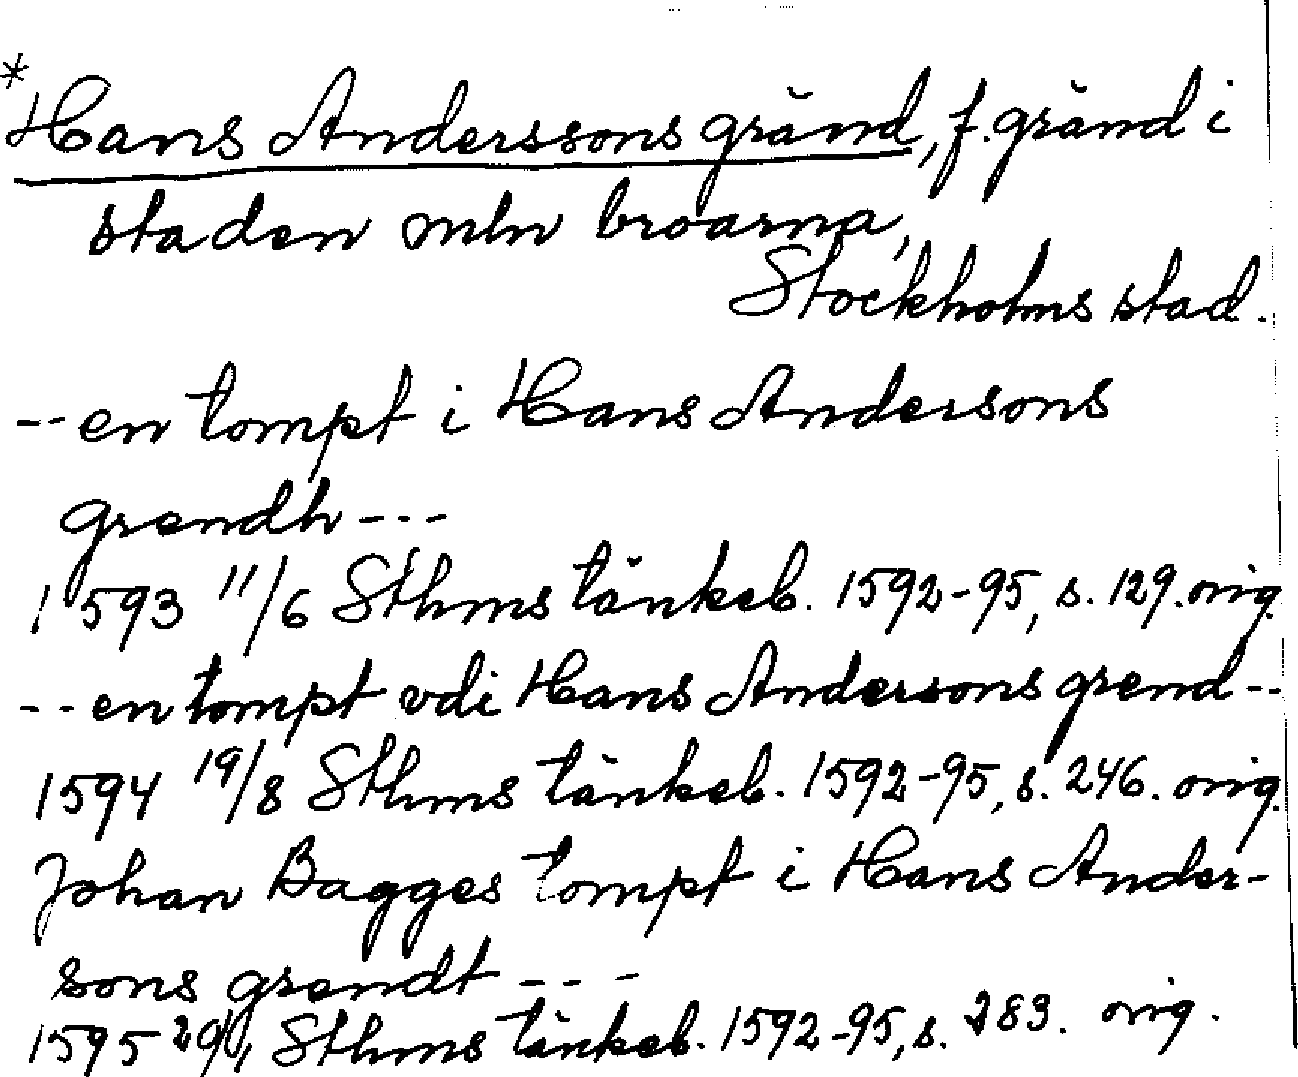 *Hans Anderssons gränd, f. gränd i
staden mln broarna,
Stockholms stad.
-- en tompt i Hans Andersons
grendh ---
1593 11/6 Sthms tänkeb. 1592-95, s. 129. orig.
-- en tompt vdi Hans Andersons grend --
1594 19/8 Sthms tänkeb. 1592-95, s. 246. orig.
Johan Bagges tompt i Hans Ander-
sons grendt ---
1595 Sthms tänkeb. 1592-95, s. 283. orig.